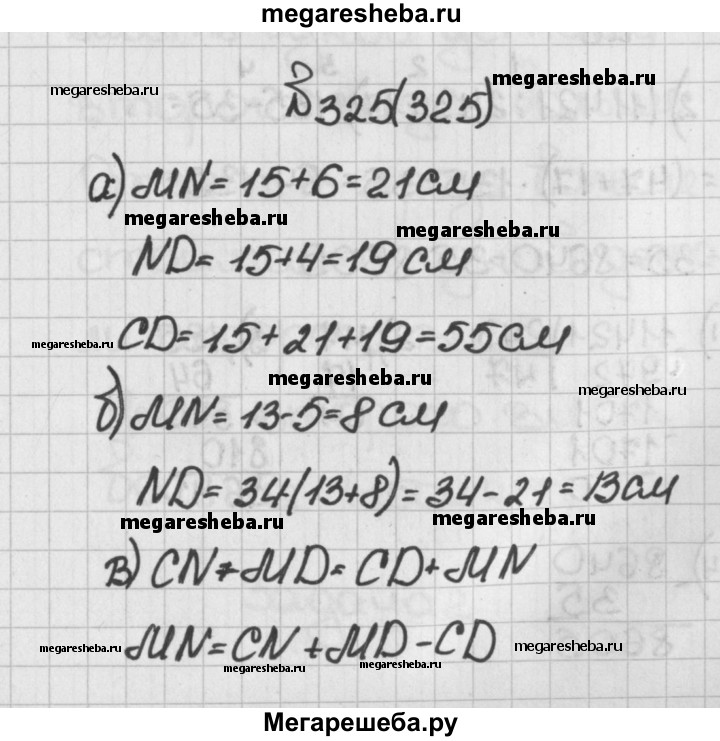 megaresheba.ru
megaresheba.ru
megaresheba.ru
№325(325)
а) MN = 15+6=21см
megaresheba.ru
megaresheba.ru
ND = 15+4=19 см
megaresheba.ru
CD = 15+21+19=55см
megaresheba.ru
megaresheba.ru
б) MN = 13-5=8 см
ND = 34(13+8) = 34-21=13см
megaresheba.ru
megaresheba.ru
в) CN + MD = CD + MN
MN = CN + MD - CD
megaresheba.ru
megaresheba.ru
megaresheba.ru
megaresheba.ru
Мегарешеба.ру